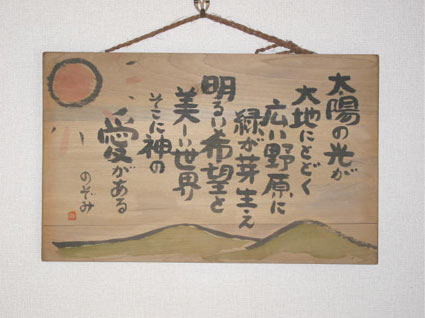 太陽の光が
大地にとどく
広い野原に
緑が芽生え
明るい希望と
美しい世界
そこに神の
愛がある
のぞみ